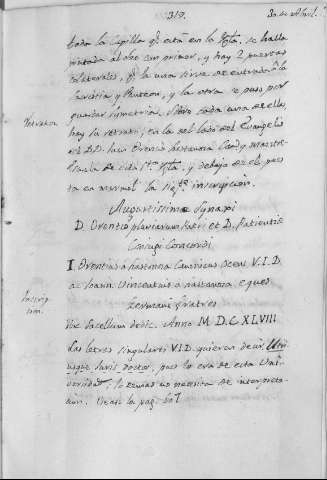 319.
30. de Abril.
toda la Capilla qe. está en la Yglª. se halla
pintada al oleo con primor, y hay 2 puertas
colaterales, qe. la una sirve de entrada a la
Sacristia, y la otra se puso por
guardar symetria. Sobre cada una de ellas
Retratos.
hay un retrato, en la del lado del Evangelio
el D.D. Juan Orencio Lastanosa Canº. y Maestre-
Escuela de esta Stª. Yglª. y debajo de el, pues-
ta en marmol la sigte. inscripcion.
Augustissimæ Synaxi
D. Orentio pluviarum Patri et D. Patientiæ
Coniugi Concordi
Inscrip-
cion.
I. Orentius a Lastanosa Canonicus Oscen. V.I.D.
ac Joann. Vincentius a Lastanosa Eques
Germani fratres
Hoc Sacellum dedic. Anno M.D.C.XLVIII
Las letras singulares V.I.D. quieren decir, Utri-
usque Juris Doctor, pues lo era de esta Uni-
versidad: lo demas no necesita de interpreta-
cion. Vease la pag.